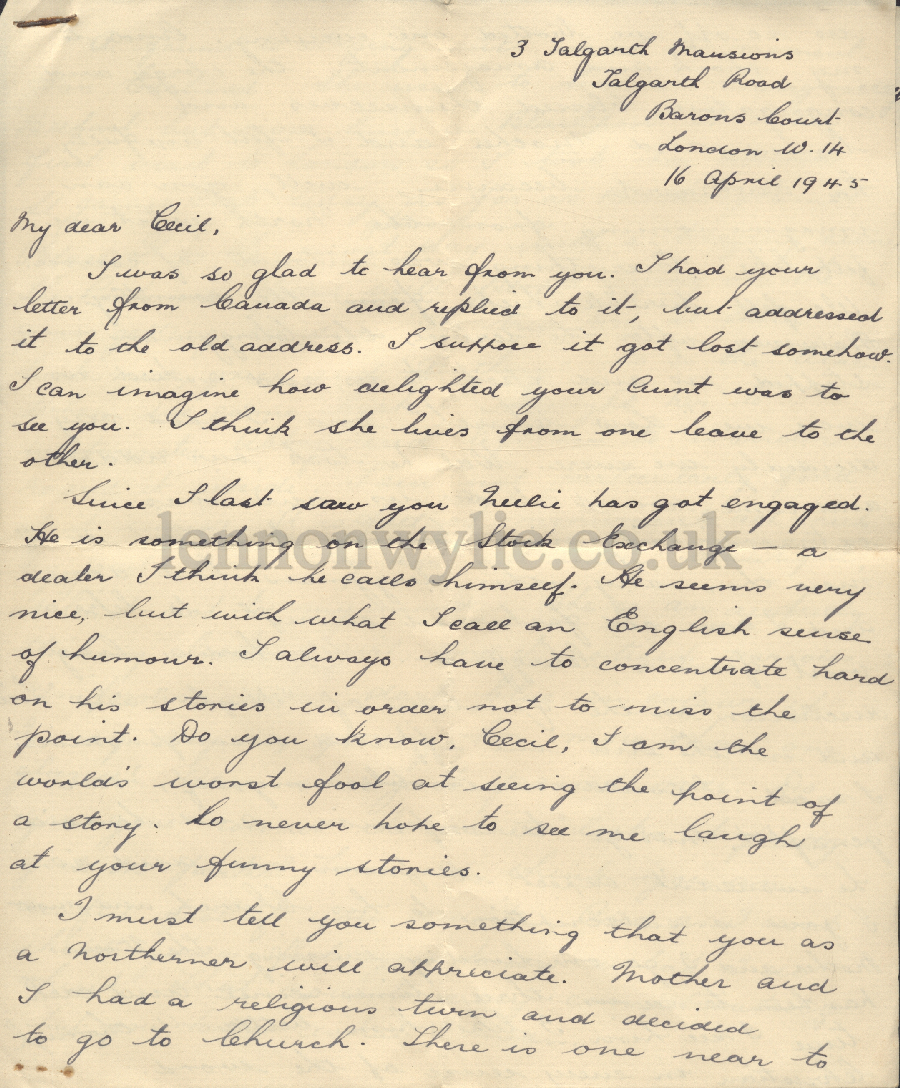 3 Talgarth Mansions
Talgarth Road
Barons Court
London W. 14
16 April 1945
My dear Cecil,
I was so glad to hear from you. I had your
letter from Canada and replied to it, but addressed
it to the old address. I suppose it got lost somehow.
I can imagine how delighted your Aunt was to
see you. I think she lives from one leave to the
other.
Since I last saw you Nellie has got engaged.
He is something on the Stock Exchange — a
dealer I think he calls himself. He seems very
nice, but with what I call an English sense
of humour. I always have to concentrate hard
on his stories in order not to miss the
point. Do you know, Cecil, I am the
world's worst fool at seeing the point of
a story. So never hope to see me laugh
at your funny stories.
I must tell you something that you as
a Northerner will appreciate. Mother and
I had a religious turn and decided
to go to Church. There is one near to
lennonwylie.co.uk